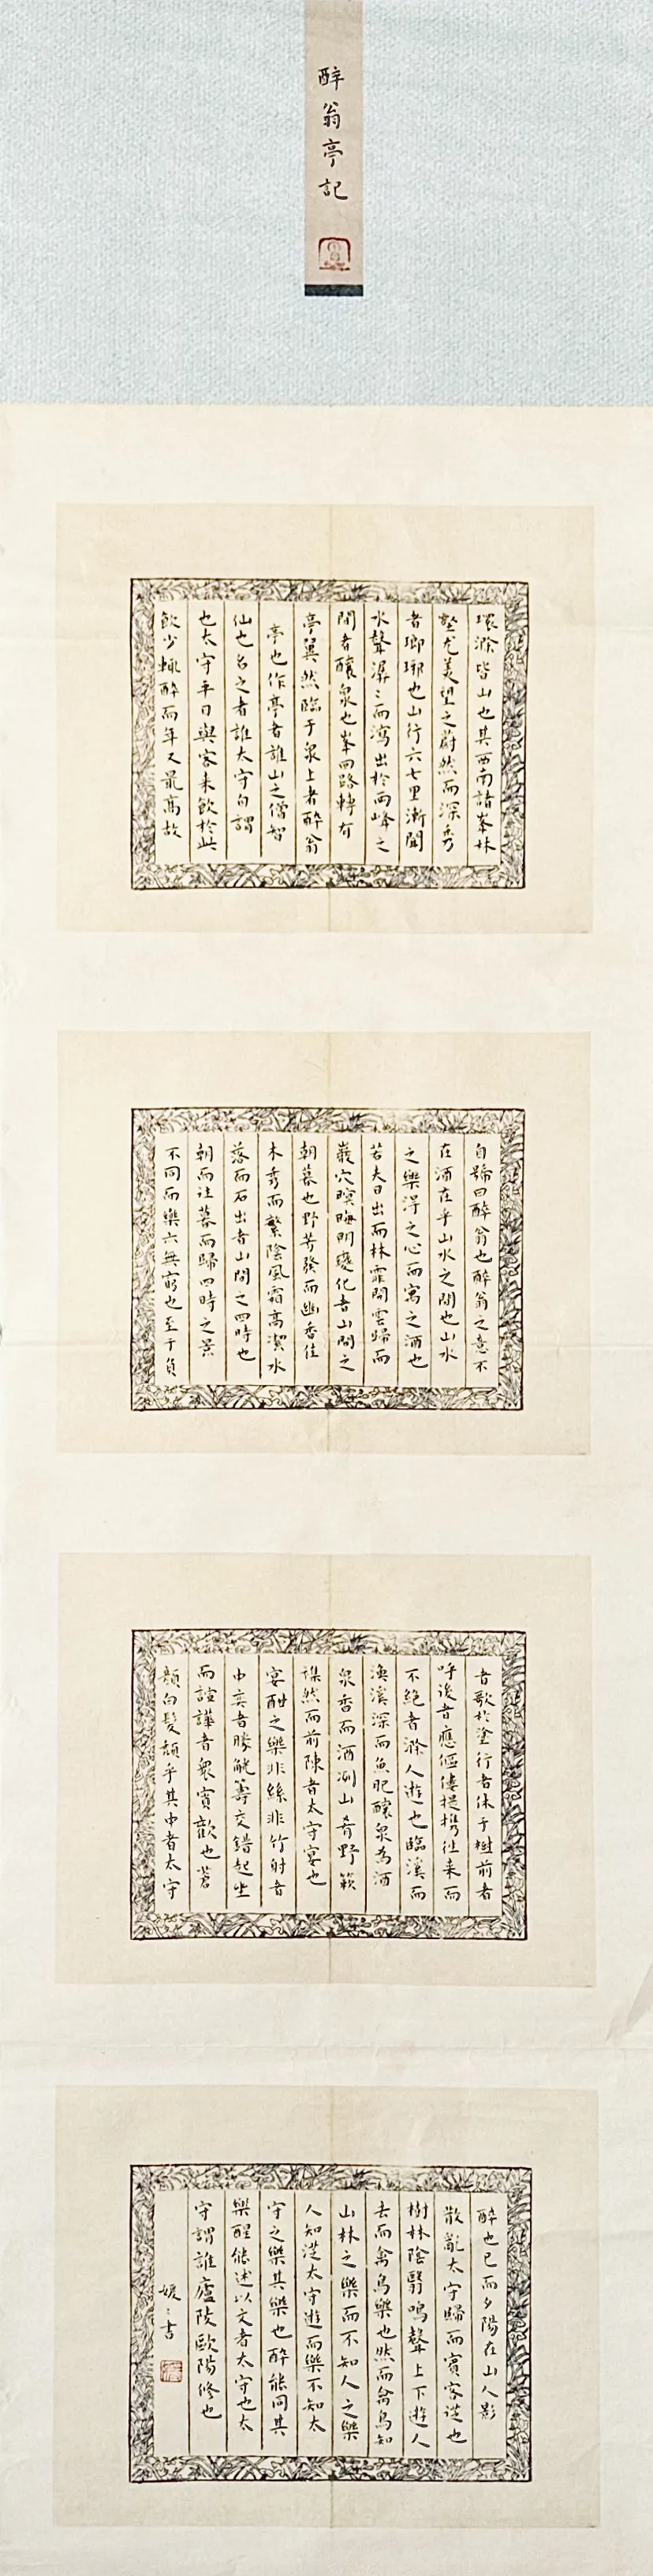 醉翁亭記
環滁皆山也其西南諸峯林
壑尤美望之蔚然而深秀
者瑯琊也山行六七里漸聞
水聲潺〻而瀉出於兩峰之
間者釀泉也峯回路轉有
亭翼然臨于泉上者醉翁
亭也作亭者誰山之僧智
仙也名之者誰太守自謂
也太守平日與客来飲於此
飲少輒醉而年又最高故
自號曰醉翁也醉翁之意不
在酒在乎山水之間也山水
之樂得之心而寓之酒也
若夫日出而林霏開雲歸而
巖穴暝晦明變化者山間之
朝暮也野芳發而幽香佳
木秀而繁陰風霜高潔水
落而石出者山間之四時也
朝而往暮而歸四時之景
不同而樂亦無窮也至于負
者歌於塗行者休于樹前者
呼後者應傴僂提携往来而
不絕者滁人遊也臨溪而
漁溪深而魚肥釀泉為酒
泉香而酒冽山肴野蔌
雜然而前陳者太守宴也
宴酣之樂非絲非竹射者
中奕者勝觥籌交錯起坐
而諠譁者衆賓歡也蒼
顏白髮頹乎其中者太守
醉也已而夕陽在山人影
散亂太守歸而賓客從也
樹林陰翳鳴聲上下遊人
去而禽鳥樂也然而禽鳥知
山林之樂而不知人之樂
人知從太守遊而樂不知太
守之樂其樂也醉能同其
樂醒能述以文者太守也太
守謂誰廬陵歐陽修也
媛〻書